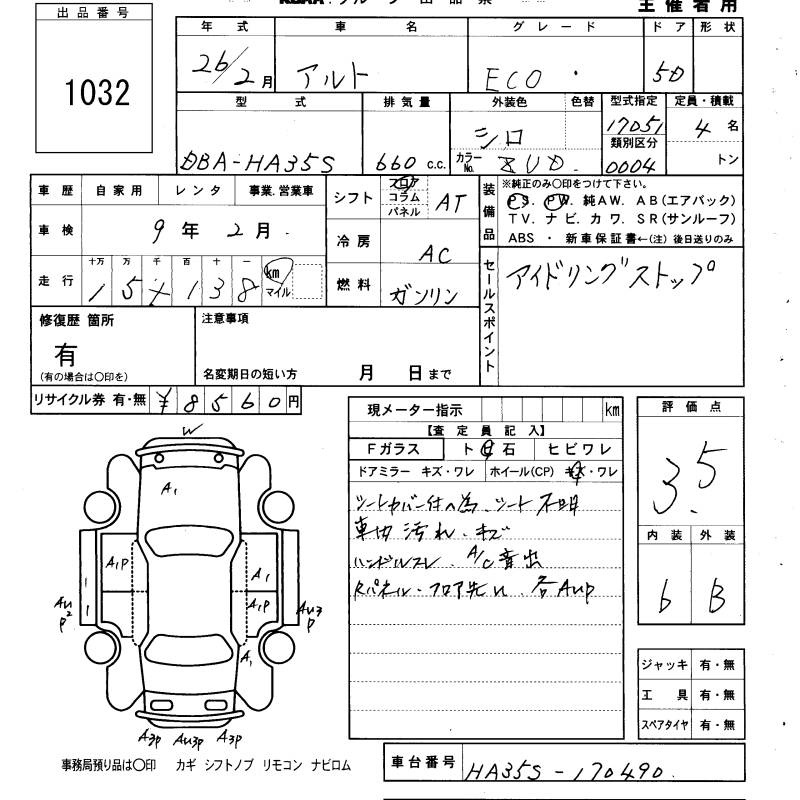 出品番号
1032
主催者用
年式 車名 グレード ドア 形状
26/2月 アルト ECO 5D
型式 排気量 外装色 色替 型式指定 定員・積載
DBA-HA35S 660 c.c. シロ 17051 4 名
カラーNo. ZUD 類別区分 0004 トン
車歴 自家用 レンタ 事業.営業車
シフト フロア コラム パネル AT
車検 9年2月
冷房 AC
走行 十万 万 千 百 十 一 km マイル
1 5 + 1 3 8
燃料 ガソリン
装備品 ※純正のみ〇印をつけて下さい。
PS. PW. 純AW. AB(エアバック)
TV. ナビ. カワ. SR(サンルーフ)
ABS ・ 新車保証書←(注) 後日送りのみ
セールスポイント アイドリングストップ
修復歴 箇所
有
(有の場合は〇印を)
注意事項
名変期日の短い方 月 日まで
リサイクル券 有・無 ¥8560円
現メーター指示 km
【査定員記入】
Fガラス トビ石 ヒビワレ
ドアミラー キズ・ワレ ホイール(CP) キズ・ワレ
シートカバー付の為、シート不明
車内汚れ、キズ
ハンドルスレ、A/C音出
Rパネル・フロア先 各AUP
評価点
3.5
内装 外装
6 B
ジャッキ 有・無
工具 有・無
スペアタイヤ 有・無
W
A1
A1P A1
A1P
AU2P AU3P
A1
A3P AU3P A3P
事務局預り品は〇印 カギ シフトノブ リモコン ナビロム
車台番号 HA35S-170490